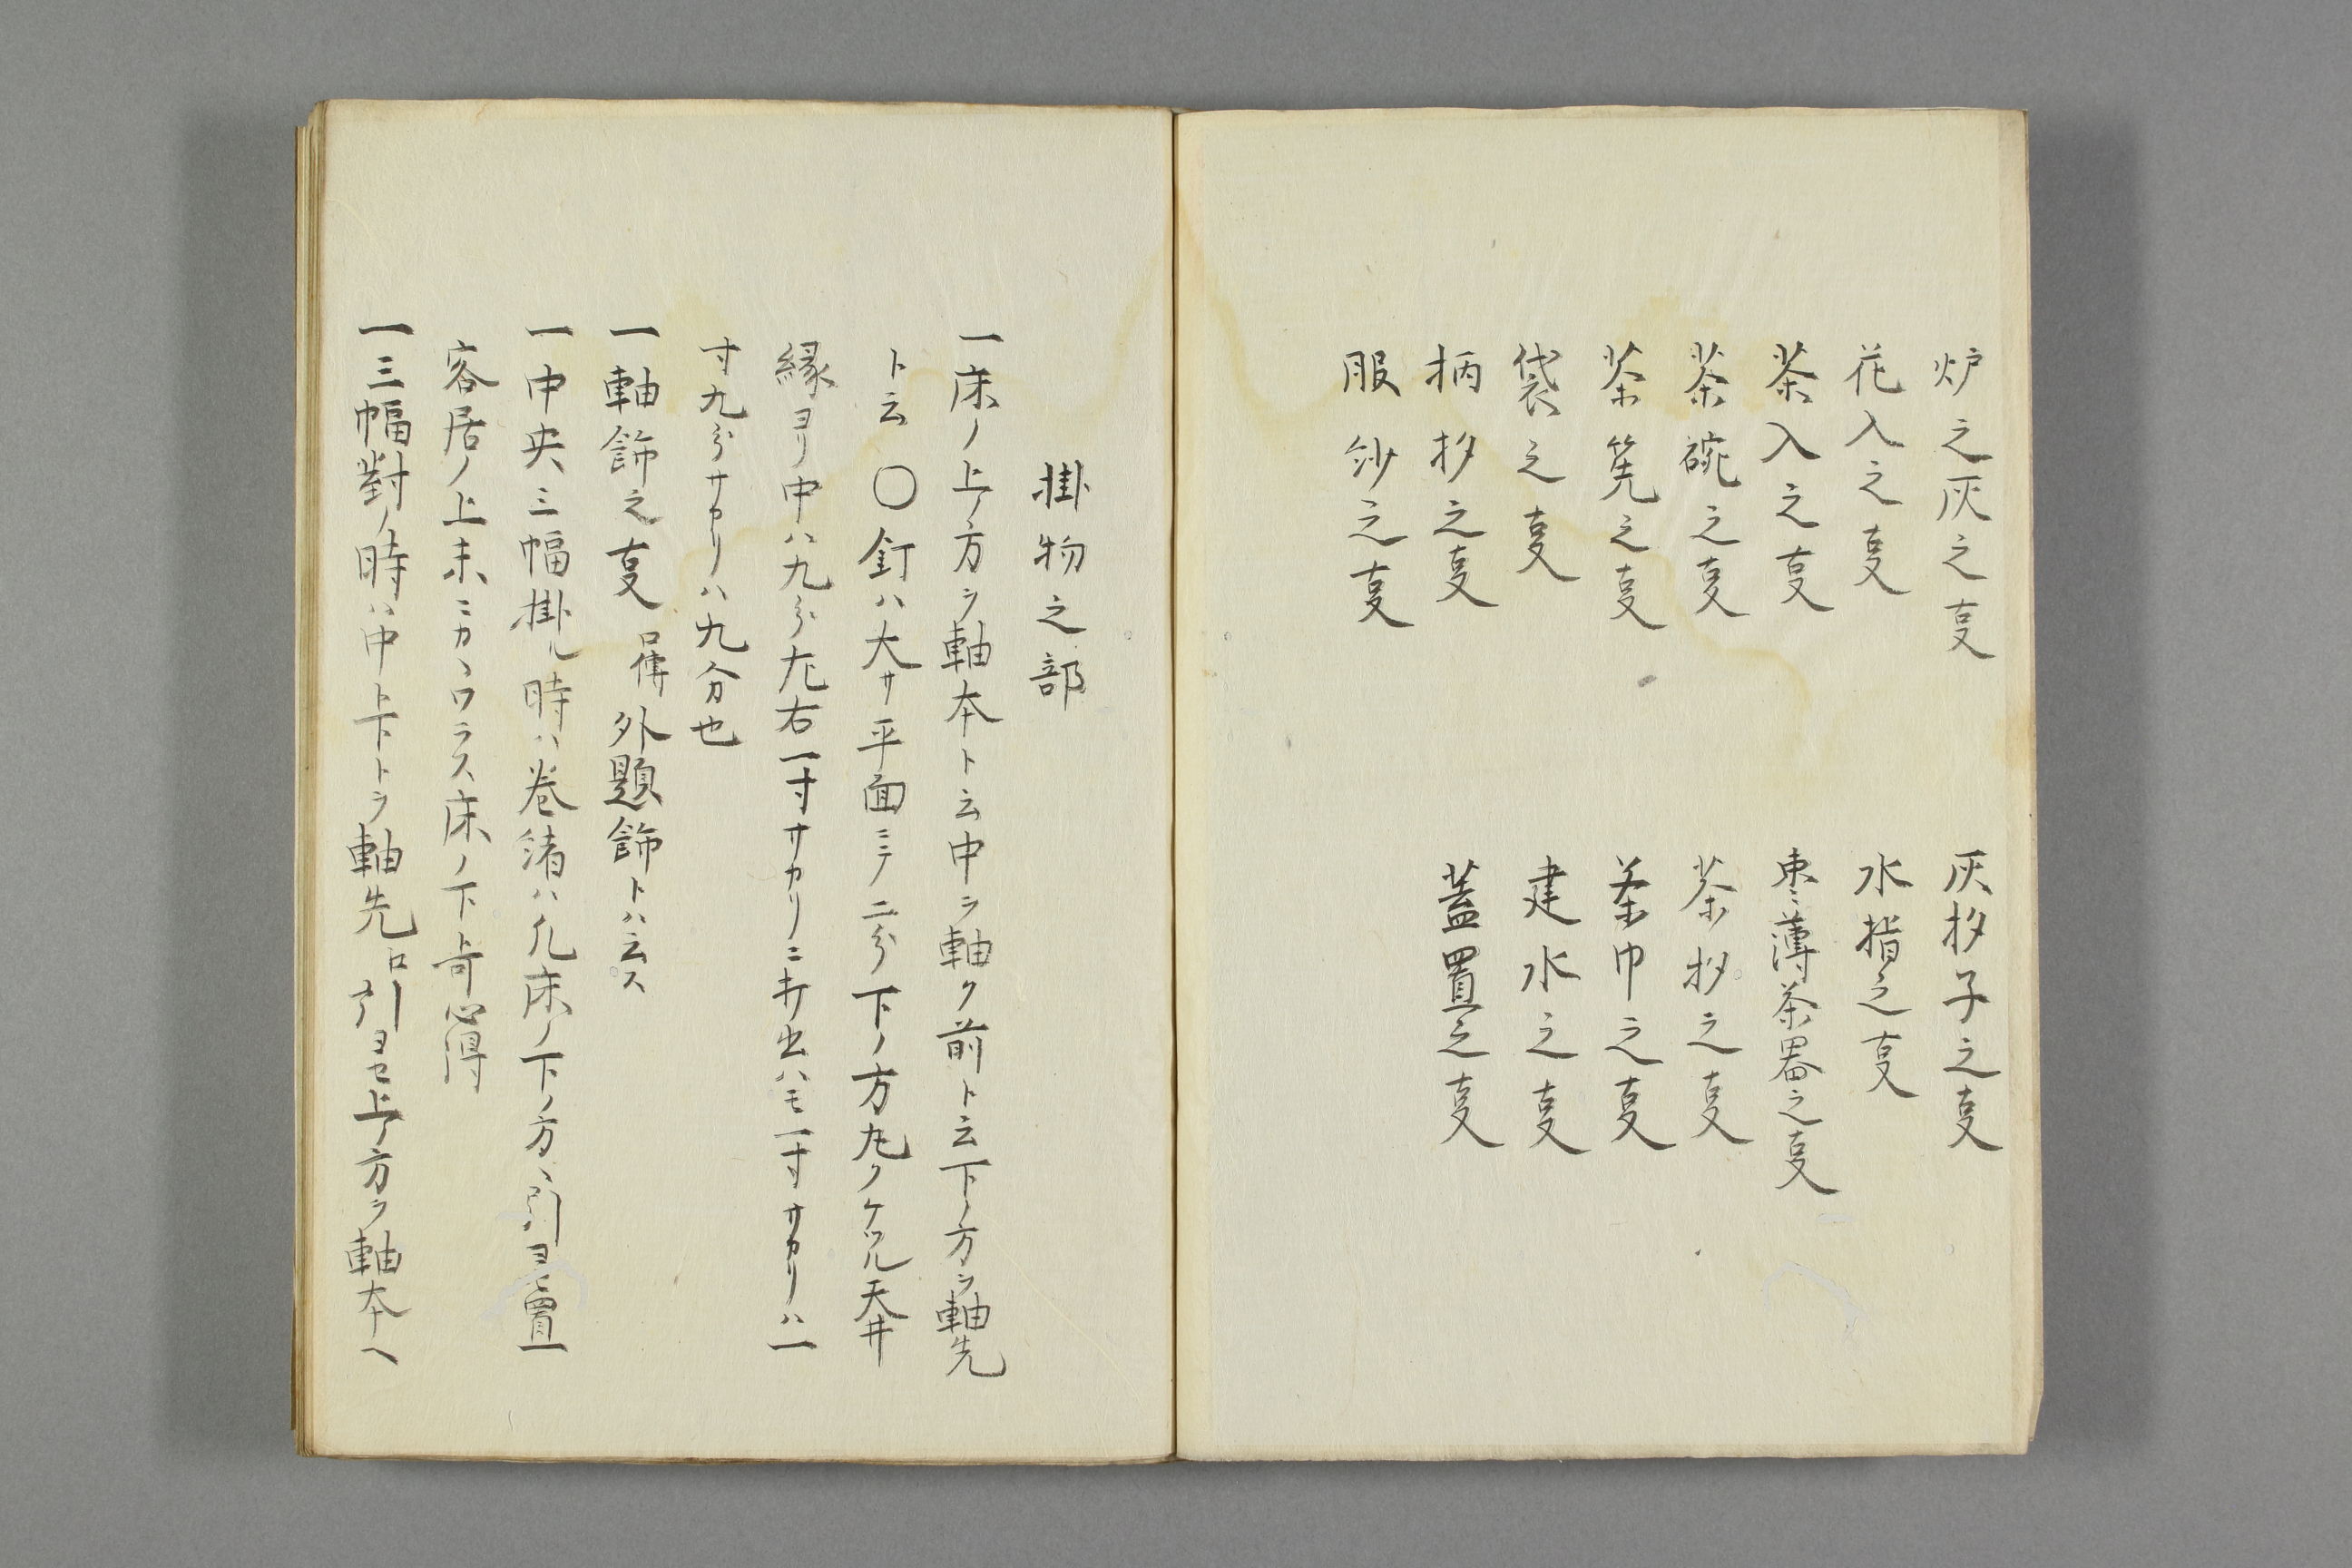 炉之灰之叓
灰抄子之叓
花入之叓
水指之叓
茶入之叓
棗薄茶器之叓
茶碗之叓
茶抄之叓
茶筅之叓
茶巾之叓
袋之叓
建水之叓
柄抄之叓
蓋置之叓
服紗之叓
掛物之部
一床ノ上ノ方ヲ軸本ト云中ヲ軸ク前ト云下ノ方ヲ軸先
ト云 〇釘ハ大サ平面ニテ二分下ノ方尢ノケツル天井
縁ヨリ中ハ九分尢右一寸サカリニ打出ハモ一寸サカリハ一
寸九分サカリハ九分也
一軸飾之叓 口傳 外題飾トハ云ス
一中央三幅掛ル時ハ巻緒ハ凢床ノ下ノ方ヘ引ヨセ置
客居ノ上末ニカヽワラス床ノ下上可心得
一三幅對ノ時ハ中上下トラ軸先口引ヨセ上ノ方ヲ軸本ヘ